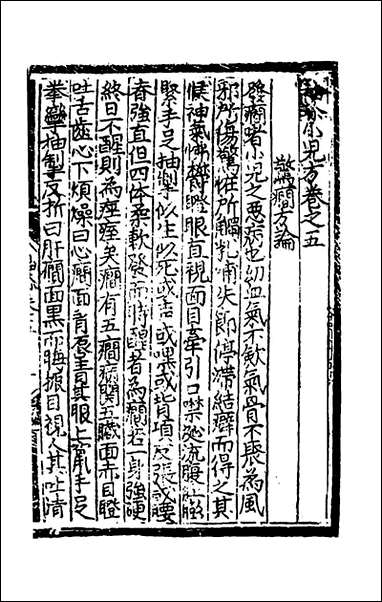 小兒方卷之五
驚癎方論
發癎者小兒之惡病也幼㓜血氣不歛氣骨不聚為風
邪所傷驚怪所觸乳哺失節停滯結癖而得之其
候神氣怫鬱瞪眼直視面目牽引口噤涎流腹肚膨
緊手足抽掣似生似死或聲或嘿或背項反張或腰
脊強直但四体柔軟發而時醒者為癎若一身強硬
終日不醒則為痓痓矣癎有五癎病關五臟面赤目瞪
吐舌齒心下煩燥曰心癎面唇眼青其眼上竄手足
拳攣抽掣反折曰肝癎面黑而晦振目視人其吐清